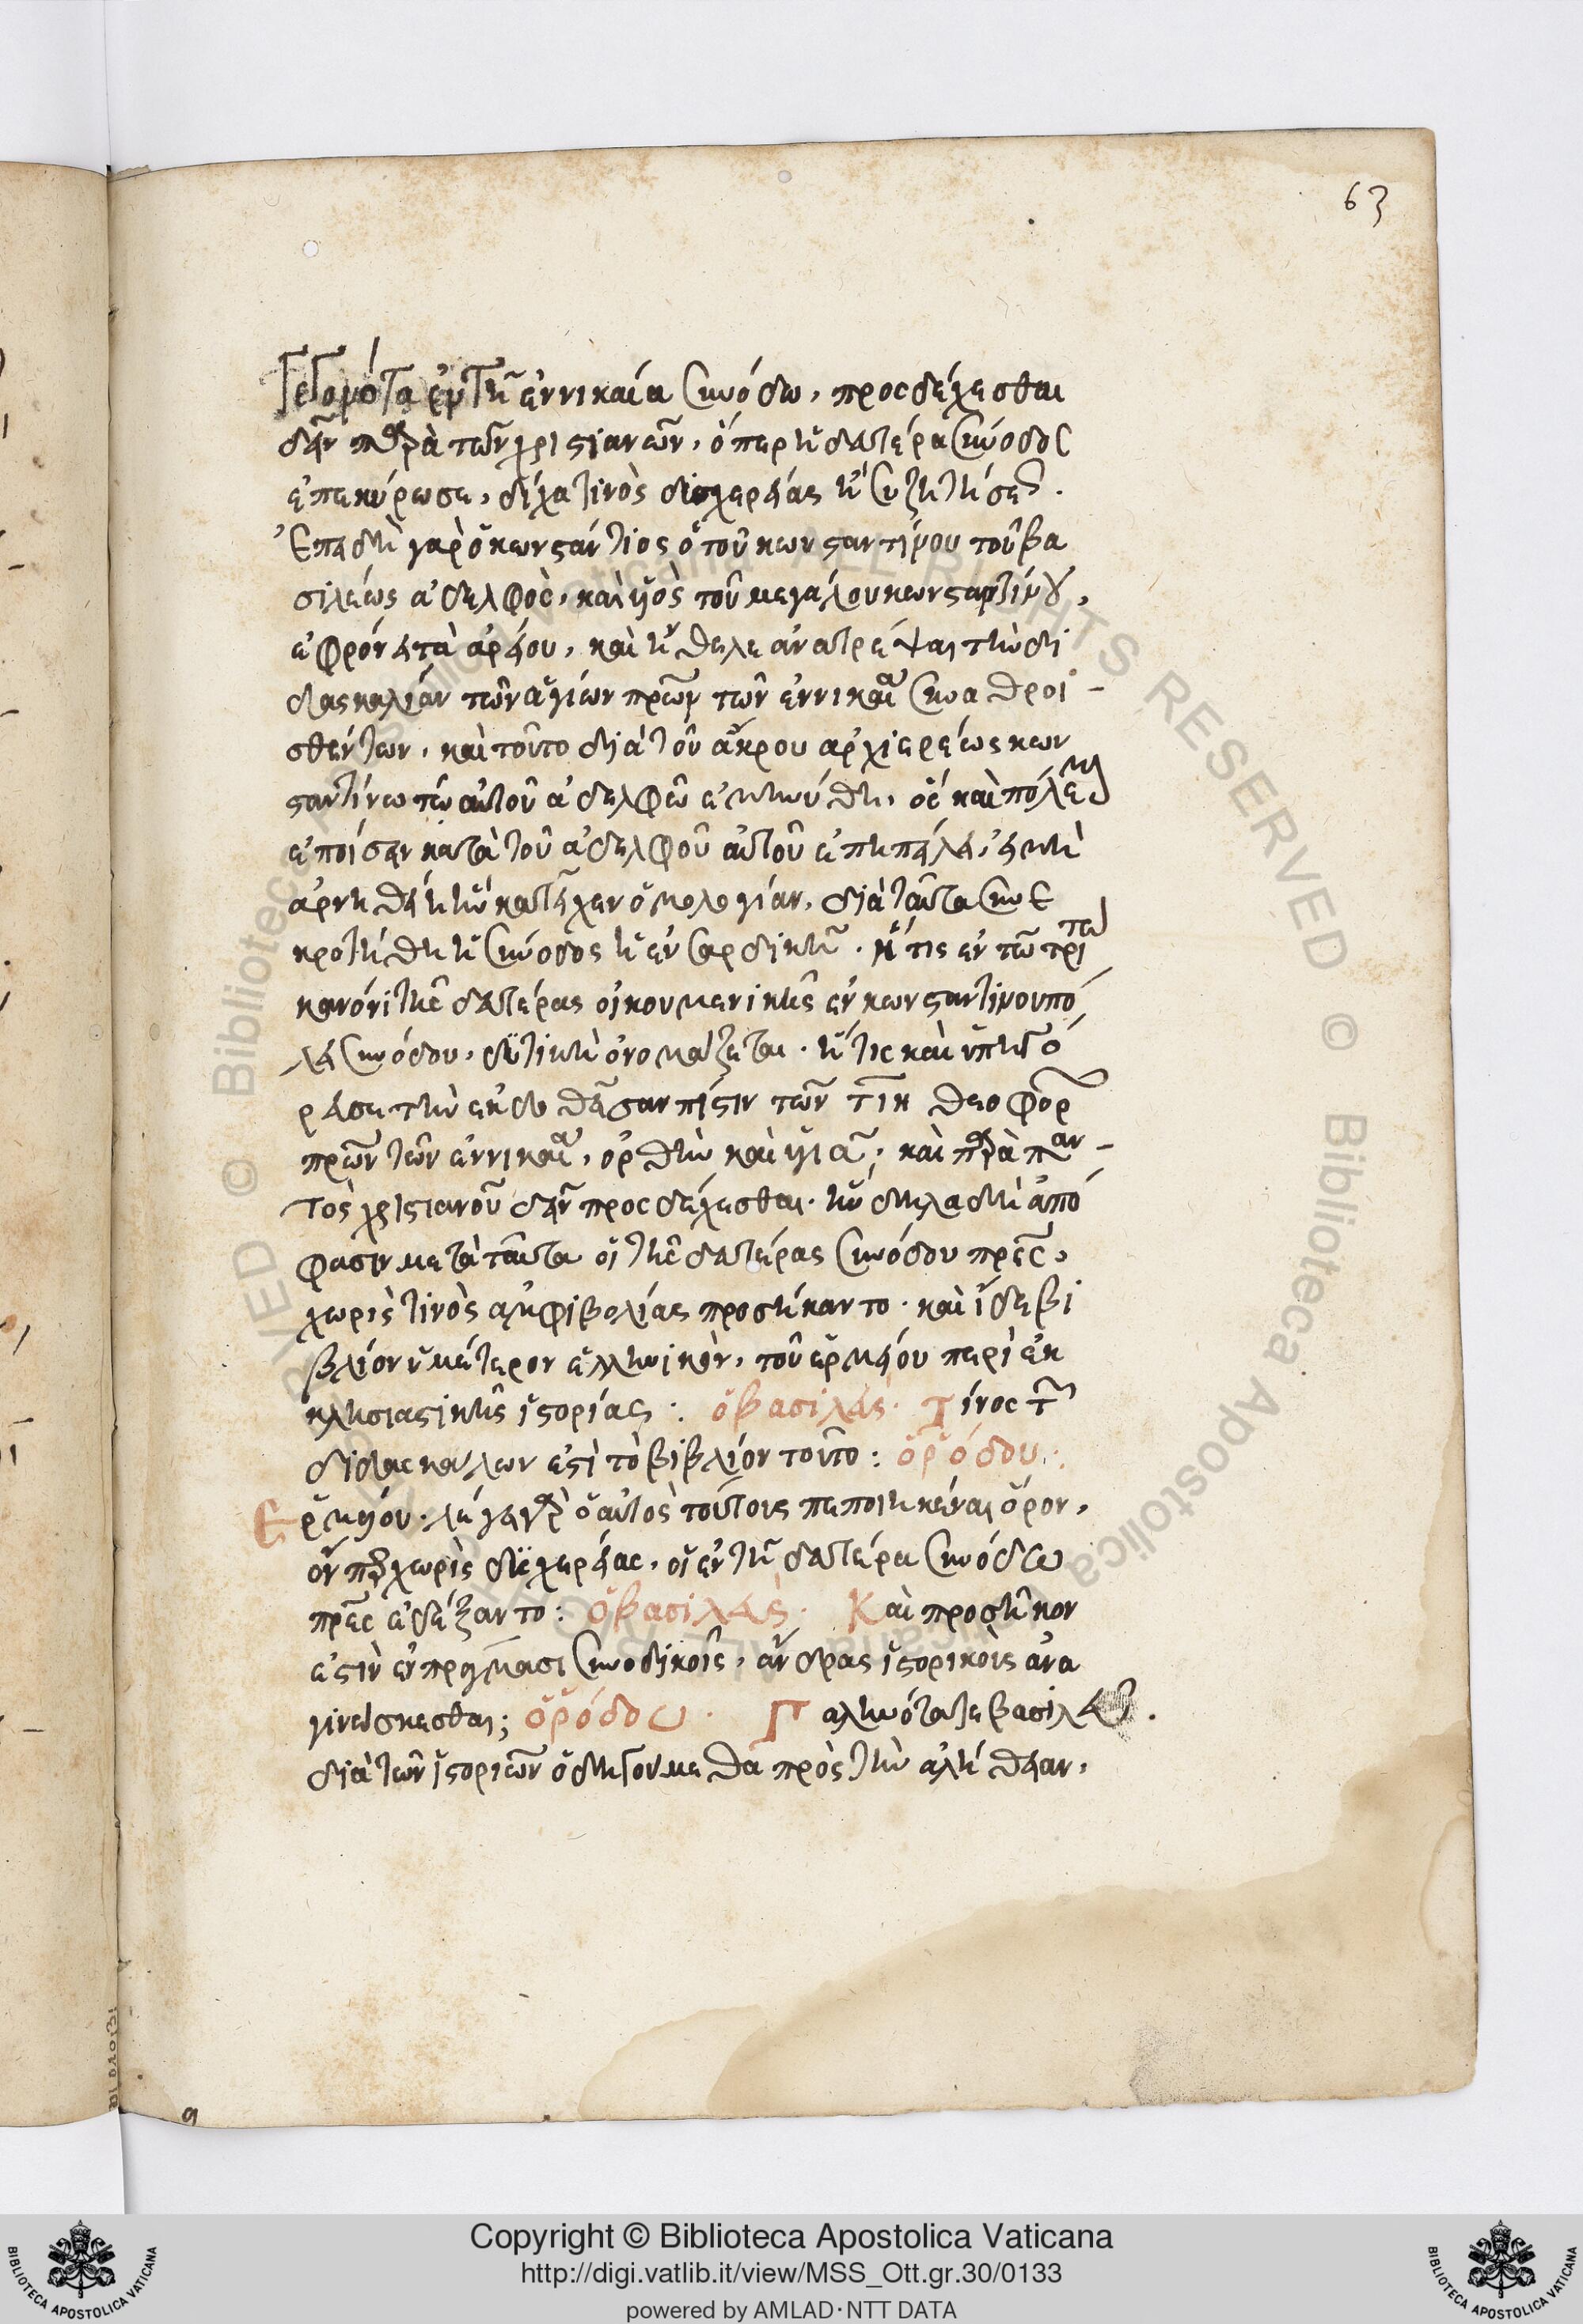 63
Γεγονότα ἐν τῇ ἐν νικαία συνόδω, προσδέχεσθαι
δεῖν παρὰ τῶν χριστιανῶν, ὅπερ ἡ δευτέρα σύνοδος
ἐπεκύρωσε, δίχα τινὸς δυσχερείας ἢ συζητήσεως.
Ἐπειδὴ γὰρ ὁ κωνστάντιος ὁ τοῦ κωνσταντίνου τοῦ βα
σιλέως ἀδελφὸς, καὶ υἱὸς τοῦ μεγάλου κωνσταντίνου,
ἐφρόνει τὰ ἀρείου, καὶ ἤθελε ἀνατρέψαι τὴν δι
δασκαλίαν τῶν ἁγίων πρων τῶν ἐν νικαία συναθροι-
σθέντων, καὶ τοῦτο διὰ τοῦ ἄκρου ἀρχιερέως κων
σταντίνω τῶ αὐτοῦ ἀδελφῶ ἐμηνύθη, ὃς καὶ πόλεμον
ἐποίσειν κατὰ τοῦ ἀδελφοῦ αὐτοῦ ἐπηπείλει, εἰ μὴ
ἀρνηθείη ἣν κατεῖχεν ὁμολογίαν, διὰ ταῦτα συνε
κροτήθη ἡ σύνοδος ἡ ἐν σαρδικῇ. ἥτις ἐν τῶ τρίτω
κανόνι τῆς δευτέρας οἰκουμενικῆς ἐν κωνσταντινουπό
λει συνόδου, δυτικὴ ὀνομάζεται. ἥτις καὶ ὑπηγό
ρευσε τὴν ἐκδοθεῖσαν πίστιν τῶν τιη θεοφόρων
πρων τῶν ἐν νικαία, ὀρθὴν καὶ ὑγιᾶ, καὶ παρὰ παν-
τὸς χριστιανοῦ δεῖν προσδέχεσθαι. ἣν δηλαδὴ ἀπό
φασιν μετὰ ταῦτα οἱ τῆς δευτέρας συνόδου πρες,
χωρίς τινος ἀμφιβολίας προσήκαντο. καὶ ἴδε βι
βλίον ὑμέτερον ἑλληνικὸν, τοῦ ἑρμείου περὶ ἐκ
κλησιαστικῆς ἱστορίας: ὁ βασιλεύς. Τίνος τῶν
διδασκάλων ἐστὶ τὸ βιβλίον τοῦτο: ὁ ῥόδου.
Ἑρμείου. λέγει γὰρ ὁ αὐτὸς τούτους πεποιηκέναι ὅρον,
ὅνπερ χωρὶς δυσχερείας, οἱ ἐν τῇ δευτέρα συνόδω
πρες ἐδέξαντο: ὁ βασιλεύς. Καὶ προσῆκον
ἐστὶν ἐν πράγμασι συνοδικοῖς, ἄνδρας ἱστορικοὺς ἀνα
γινώσκεσθαι; ὁ ῥόδου. Γαληνότατε βασιλεῦ.
διὰ τῶν ἱστοριῶν ὁδηγούμεθα πρὸς τὴν ἀλήθειαν,
Copyright © Biblioteca Apostolica Vaticana
http://digi.vatlib.it/view/MSS_Ott.gr.30/0133
powered by AMLAD·NTT DATA